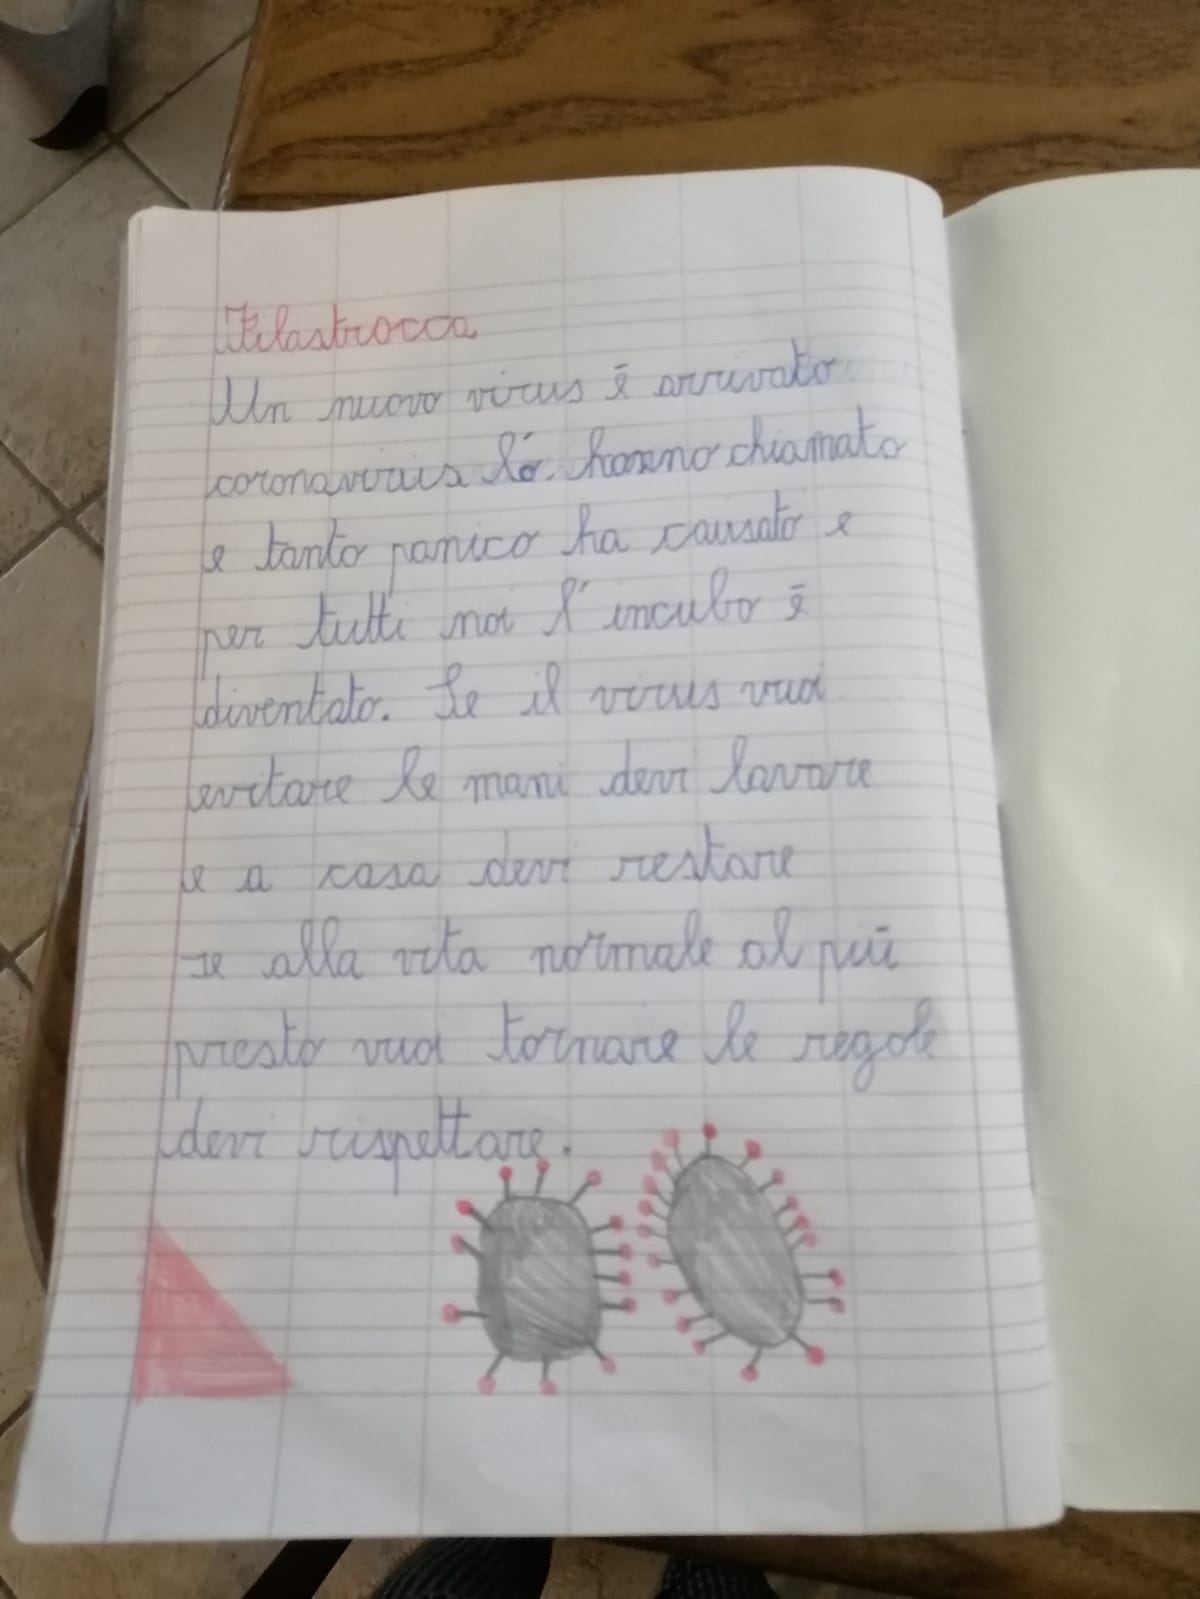 Filastrocca
Un nuovo virus è arrivato
coronavirus lo hanno chiamato
e tanto panico ha causato e
per tutti noi l'incubo è
diventato. Se il virus vuoi
evitare le mani devi lavare
e a casa devi restare
se alla vita normale al più
presto vuoi tornare le regole
devi rispettare.